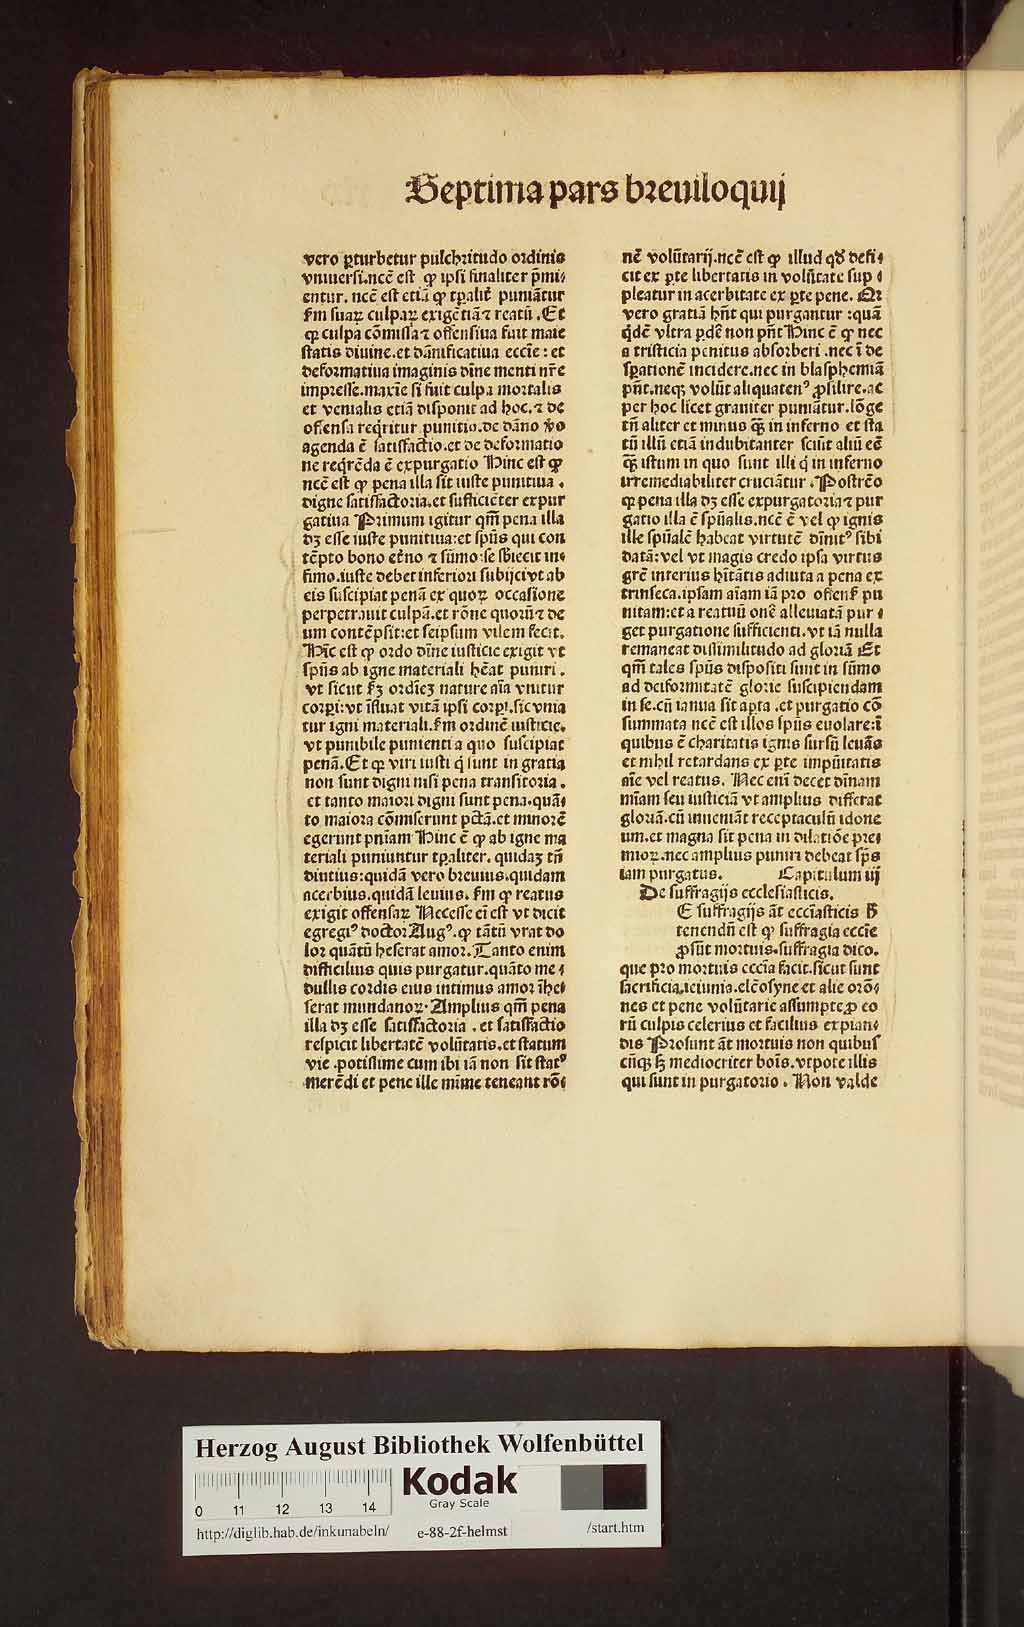 Septima pars breuiloquij
vero ꝑturbetur pulchritudo ordinis
vniuersi.nccē est ꝙ ipsi finaliter p̄mi⸗
entur. nccē est etiā ꝙ tꝑalit̓ puniātur
ẜm suaꝝ culpaꝝ exigētiā ⁊ reatū. Et
qꝛ culpa cōmissa ⁊ offensiua fuit maie
statis diuine.et dānificatiua eccīe: et
deformatiua imaginis dīne menti nr̄e
impresse.maxīe si fuit culpa mortalis
et venialis etiā disponit ad hoc.⁊ de
offensa reqͥritur punitio.de dāno v̓o
agenda ē satisfactio.et de deformatio
ne reqͥrēda ē expurgatio Hinc est ꝙ
nccē est ꝙ pena illa sit iuste punitiua.
digne satisfactoria.et sufficiēter expur
gatiua Primum igitur qm̄ pena illa
dꝫ esse iuste punitiua:et sp̄us qui con
tēpto bono et̓no ⁊ sūmo:se sbiecit in⸗
fimo.iuste debet inferiori subijci vt ab
eis suscipiat penā ex quoꝝ occasione
perpetrauit culpā.et rōne quorū ⁊ de
um contēpsit:et seipsum vilem fecit.
Hīc est ꝙ ordo dīne iusticie exigit vt
sp̄us ab igne materiali hēat puniri.
vt sicut ẜꝫ ordīeꝫ nature aīa vnitur
corpͥ:vt īfluat vitā ipsi corpͥ.sic vnia
tur igni materiali.ẜm ordinē iusticie.
vt punibile punienti a quo suscipiat
penā.Et qꝛ viri iusti qͥ sunt in gratia
non sunt digni nisi pena transitoria.
et tanto maiori digni sunt pena.quā⸗
to maiora cōmiserunt pctā.et minorē
egerunt pniam Hinc ē ꝙ ab igne ma
teriali puniuntur tꝑaliter. quidaꝫ tn̄
diutius:quidā vero breuius.quidam
acerbius.quidā leuius. ẜm ꝙ reatus
exigit offensaꝝ Necesse eī est vt dicit
egregiꝰ doctor Augꝰ.ꝙ tātū vrat do
lor quātū heserat amor. Tanto enim
difficilius quis purgatur.quāto me⸗
dullis cordis eius intimus amor īhe⸗
serat mundanoꝝ. Amplius qm̄ pena
illa dꝫ esse satisfactoria. et satisfactio
respicit libertatē volūtatis.et statum
vie.potissime cum ibi iā non sit statꝰ
merēdi et pene ille mīme teneant rō⸗
nē volūtarij.nccē est ꝙ illud qd̓ defi⸗
cit ex ꝑte libertatis in volūtate sup⸗
pleatur in acerbitate ex ꝑte pene. Qꝛ
vero gratiā hn̄t qui purgantur:quā
qͥdē vltra ꝑdē non pn̄t Hinc ē ꝙ nec
a tristicia penitus absorberi.nec ī de
sꝑationē incidere.nec in blasphemiā
pn̄t.neqꝫ volūt aliquatenꝰ ꝓsilire.ac
per hoc licet grauiter puniātur.lōge
tn̄ aliter et minus qͣꝫ in inferno et sta
tū illū etiā indubitanter sciūt aliū eē
qͣꝫ istum in quo sunt illi qͥ in inferno
irremediabiliter cruciātur. Postrēo
qꝛ pena illa dꝫ esse expurgatoria ⁊ pur
gatio illa ē sp̄ualis.nccē ē vel ꝙ ignis
ille sp̄ualē habeat virtutē dīnitꝰ sibi
datā:vel vt magis credo ipsa virtus
grē interius hītātis adiuta a pena ex
trinseca.ipsam aīam iā pro offens̓ pu
nitam:et a reatuū onē alleuiatā pur⸗
get purgatione sufficienti.vt iā nulla
remaneat dissimilitudo ad gloriā Et
qm̄ tales sp̄us dispositi sunt in sūmo
ad deiformitatē glorie suscipiendam
in se.cū ianua sit aꝑta.et purgatio cō
summata nccē est illos sp̄us euolare:ī
quibus ē charitatis ignis sursū leuās
et nihil retardans ex ꝑte impūitatis
aīe vel reatus. Nec enī decet dīnam
mīam seu iusticiā vt amplius differat
gloriā.cū inueniāt receptaculū idone
um.et magna sit pena in dilatiōe pre⸗
mioꝝ.nec amplius puniri debeat sp̄s
iam purgatus. Capitulum iij
De suffragijs ecclesiasticis.
E suffragijs āt ecclīasticis h̄
tenendū est ꝙ suffragia eccīe
ꝓsūt mortuis.suffragia dico.
que pro mortuis eccīa facit.sicut sunt
sacrificia.ieiunia.elēosyne et alie orō⸗
nes et pene volūtarie assumpte ꝓ eo
rū culpis celerius et facilius expian⸗
dis Prosunt āt mortuis non quibus
cūqꝫ ẜꝫ mediocriter boīs.vtpote illis
qui sunt in purgatorio. Non valde
Herzog August Bibliothek Wolfenbüttel
Kodak
Gray Scale
0 11 12 13 14
http://diglib.hab.de/inkunabeln/ e-88-2f-helmst /start.htm